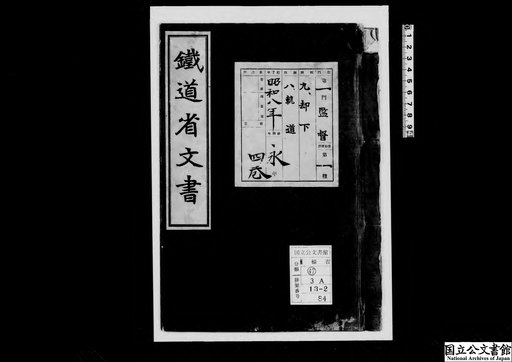 鐵道省文書
第一門 監督
第一種
九、却下
八軌道
昭和八年
永
四巻
国立公文書館
分類
排架番号
3A
13-2
84
1 2 3 4 5 6 7 8 9
国立公文書館
National Archives of Japan